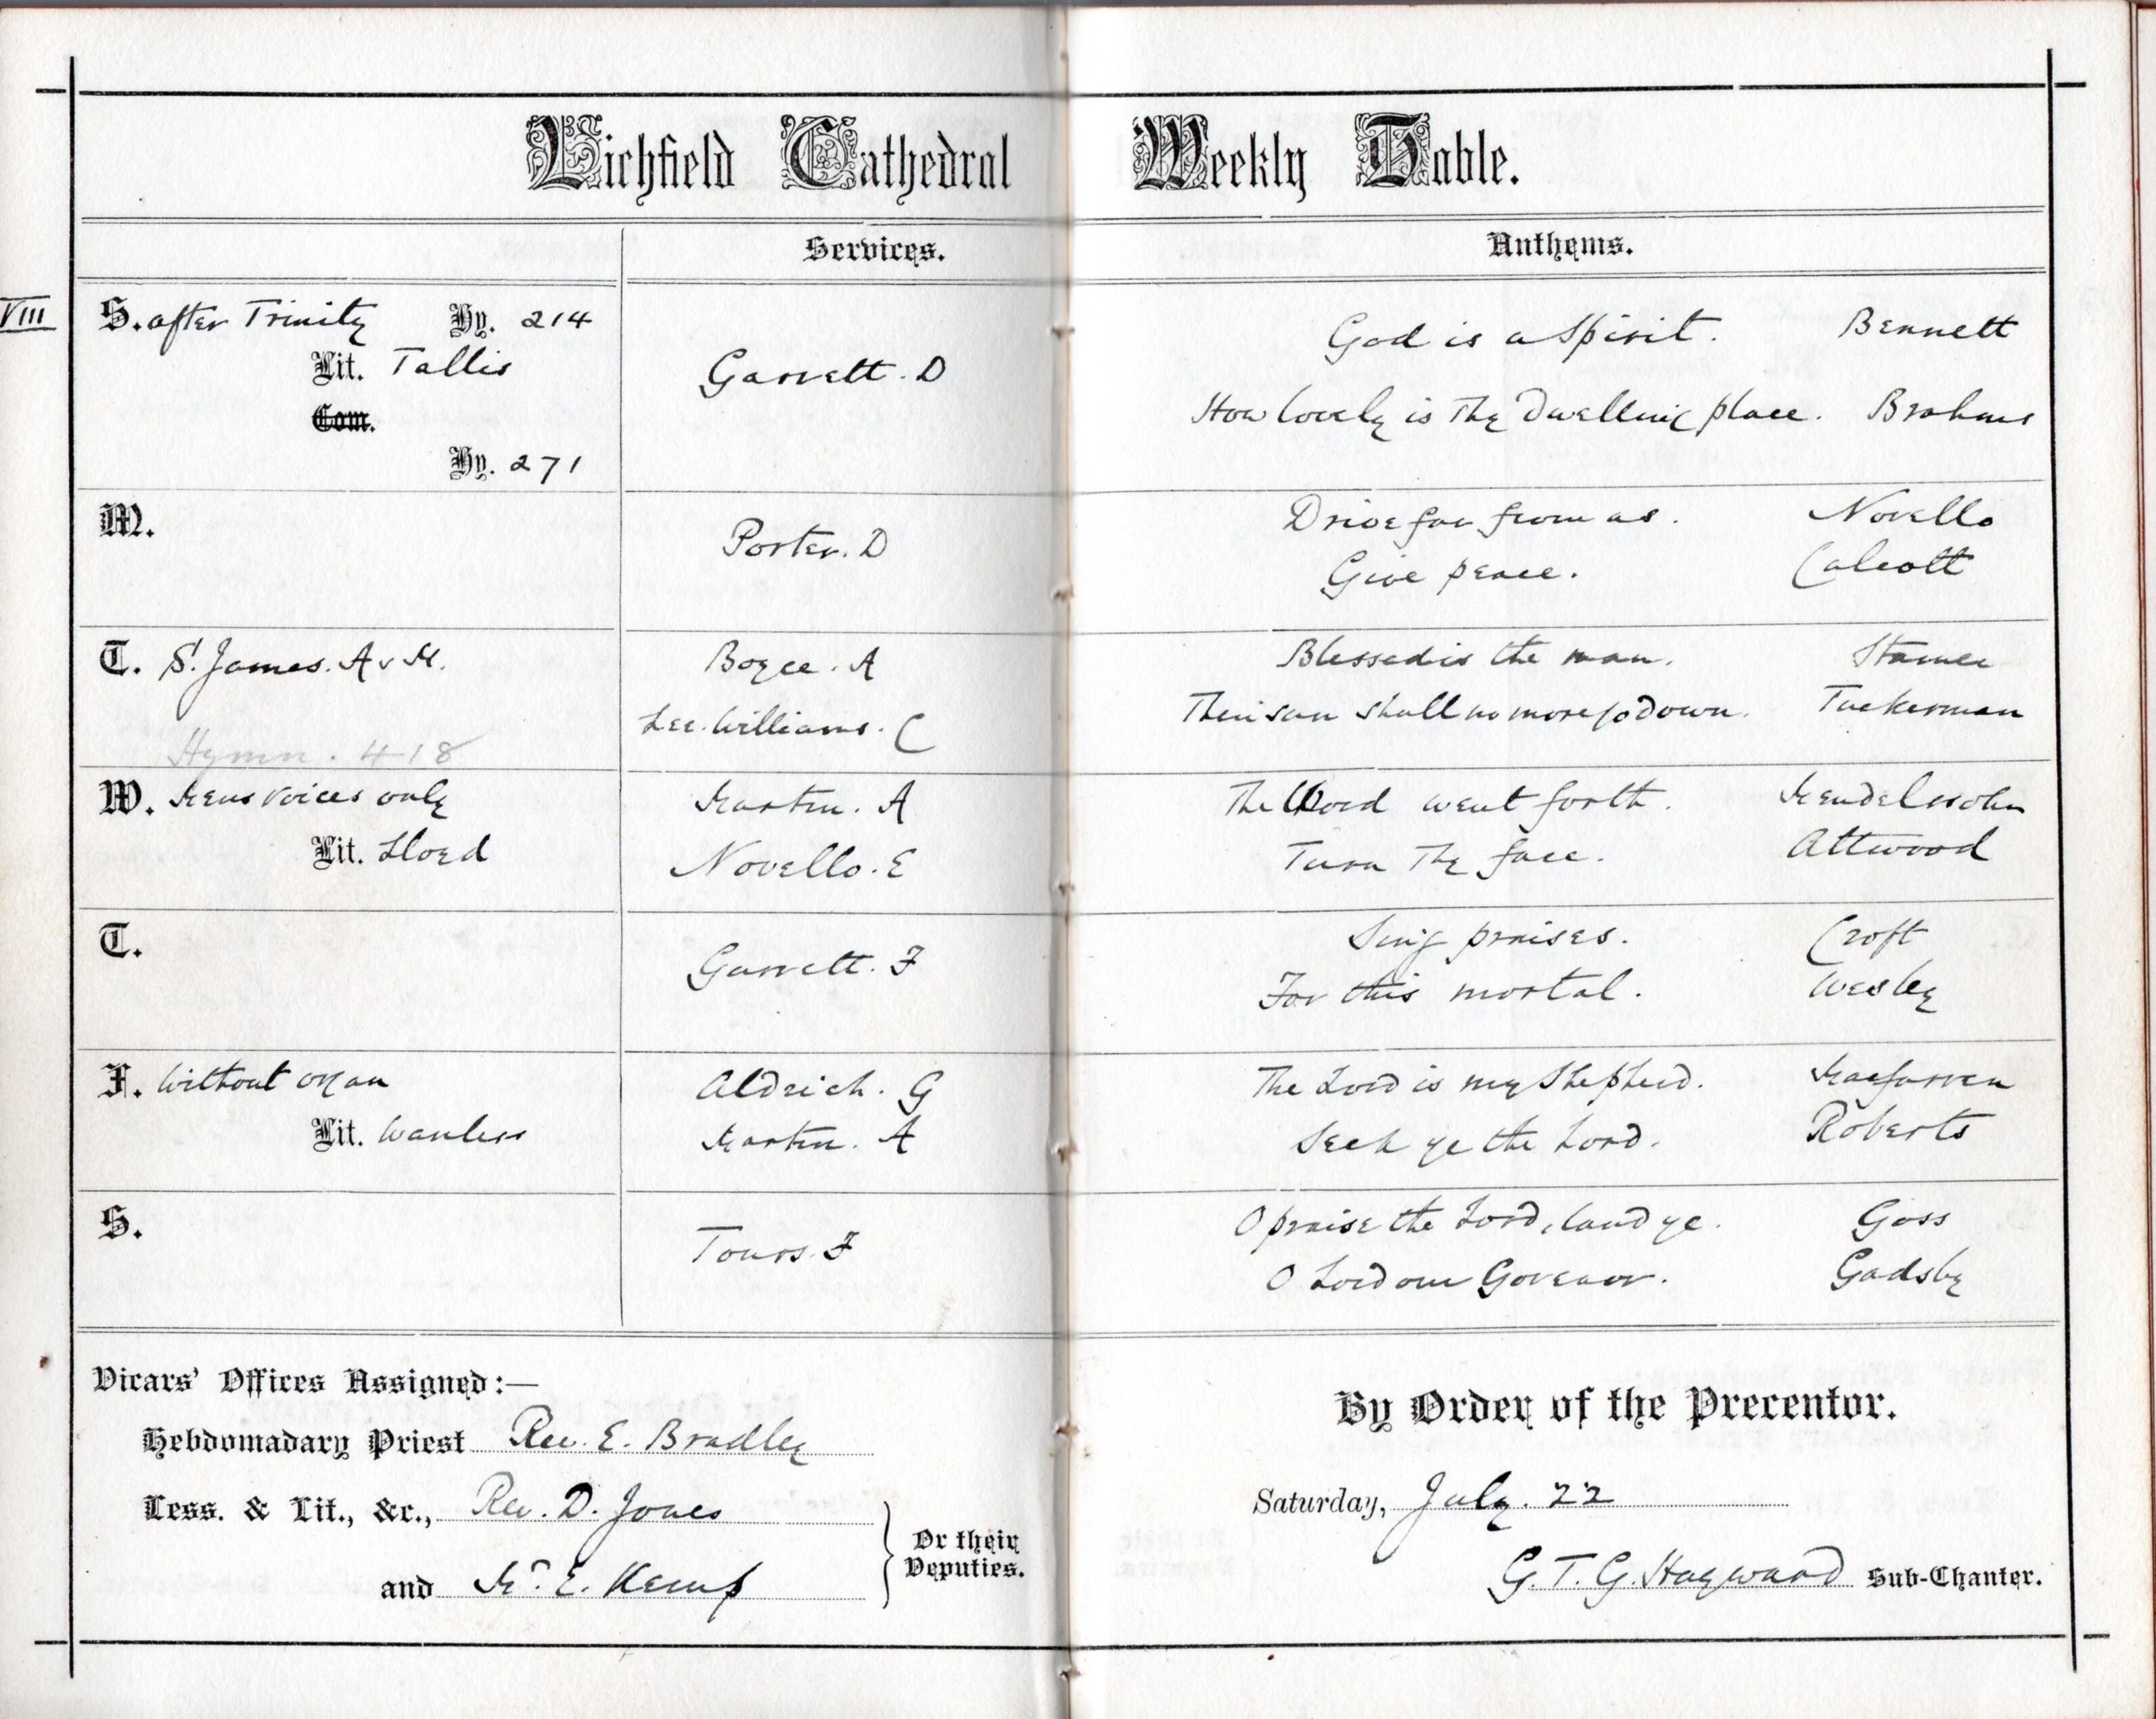 Lichfield Cathedral Weekly Table.
Services. Anthems.
VIII S. after Trinity Hy. 214
Lit. Tallis
Com.
Hy. 271
Garrett. D
God is a Spirit. Bennett
How lovely is Thy Dwelling place. Brahms
M.
Porter. D
Drive far from us. Novello
Give peace. Calcott
T. St. James. A v M.
Hymn. 418
Boyce. A
Lee. Williams. C
Blessed is the man. Stainer
Their sun shall no more go down. Tuckerman
W. Mens voices only
Lit. Lloyd
Martin. A
Novello. E
The Word went forth. Mendelssohn
Turn Thy face. Attwood
T.
Garrett. F
Sing praises. Croft
For this mortal. Wesley
F. Without organ
Lit. Wanless
Aldrich. G
Martin. A
The Lord is my Shepherd. Macfarren
Seek ye the Lord. Roberts
S.
Tours. F
O praise the Lord, laud ye. Goss
O Lord our Govenor. Gadsby
Vicars' Offices Assigned:—
Hebdomadary Priest Rev. E. Bradley
Less. & Lit., &c., Rev. D. Jones
and Mr. E. Kemp
Or their
Deputies.
By Order of the Precentor.
Saturday, July. 22
G. T. G. Hayward Sub-Chanter.